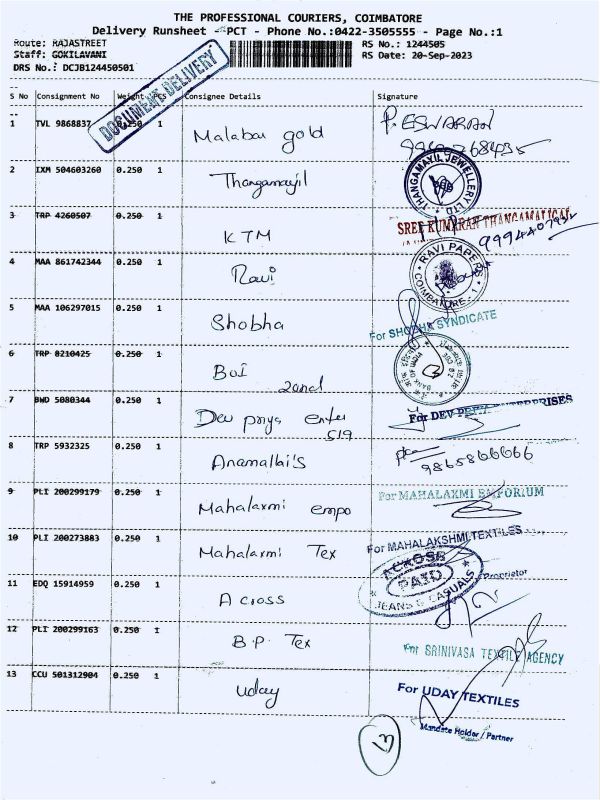 THE PROFESSIONAL COURIERS, COIMBATORE
Delivery Runsheet - PCT - Phone No.:0422-3505555 - Page No.:1
Route: RAJASTREET RS No.: 1244505
Staff: GOKILAVANI RS Date: 20-Sep-2023
DRS No.: DCJB124450501
DOCUMENT DELIVERY
S No Consignment No Weight PCS Consignee Details Signature
1 TVL 9868837 1 Malabar gold P. ESWARAN
2 IXM 504603260 0.250 1 Thangamayil THANGAMAYIL JEWELLERY LTD
3 TRP 4260507 0.250 1 KTM SREE KUMARAN THANGAMALIGAI
9994407932
4 MAA 861742344 0.250 1 Ravi RAVI PAPERS COIMBATORE - 1
5 MAA 106297015 0.250 1 Shobha For SHOBHA SYNDICATE
6 TRP 8210425 0.250 1 BOI BANK OF INDIA
2ond
7 BWD 5080344 0.250 1 Dev priya enter For DEV PRIYA ENTERPRISES
519
8 TRP 5932325 0.250 1 Anamallai's 9865866666
9 PLI 200299179 0.250 1 Mahalaxmi empo For MAHALAXMI EMPORIUM
10 PLI 200273883 0.250 1 Mahalaxmi Tex For MAHALAKSHMI TEXTILES
Proprietor
11 EDQ 15914959 0.250 1 Across ACROSS PAID JEANS & CASUALS
12 PLI 200299163 0.250 1 B.P. Tex For SRINIVASA TEXTILE AGENCY
13 CCU 501312904 0.250 1 Uday For UDAY TEXTILES
Mandate Holder / Partner
13